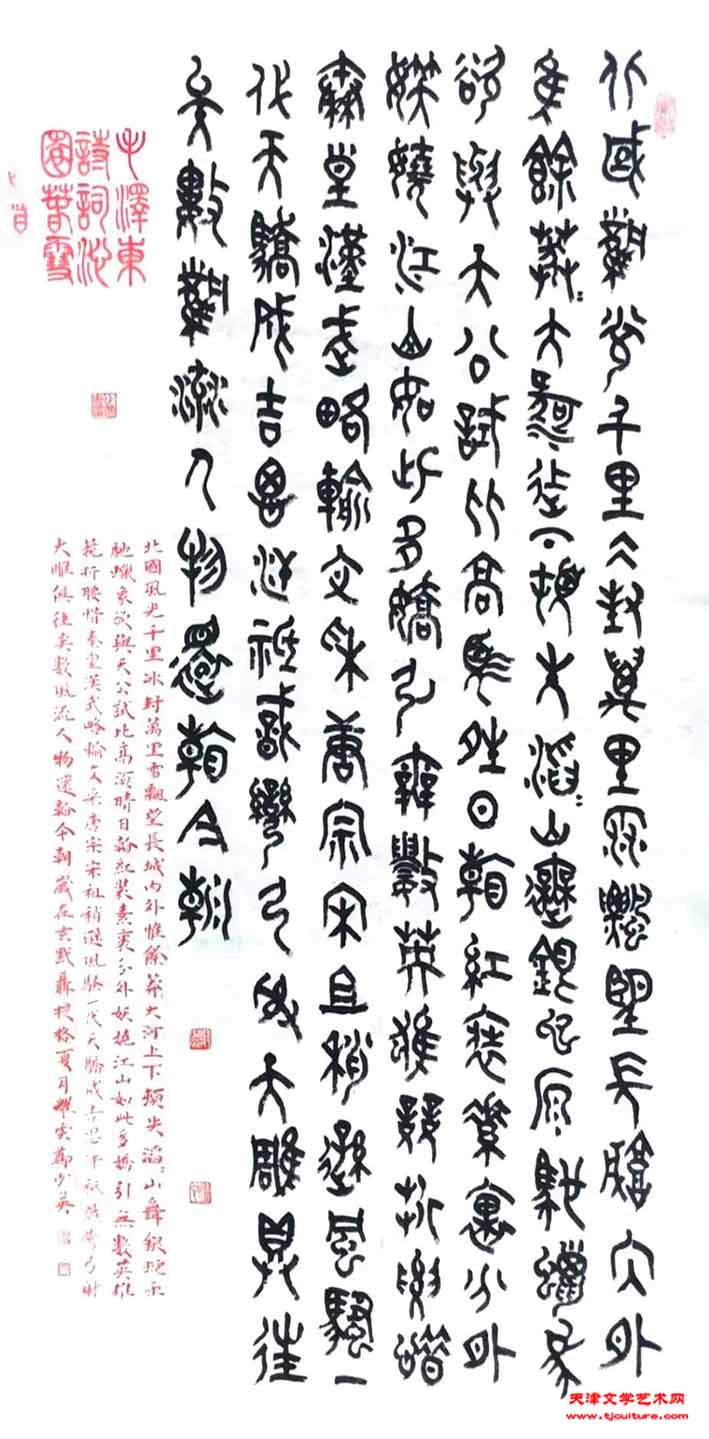 北國風光千里冰封萬里雪飄望長城內外
惟餘莽=大河上下頓失滔=山舞銀蛇原馳蠟象
欲與天公試比高須晴日看紅裝素裹分外
妖嬈江山如此多嬌引無數英雄競折腰惜
秦皇漢武略輸文采唐宗宋祖稍遜風騷一
代天驕成吉思汗祗識彎弓射大雕俱往
矣數風流人物還看今朝
毛澤東
詩詞沁
園春雪
北國風光千里冰封萬里雪飄望長城內外惟餘莽大河上下頓失滔=山舞銀蛇原
馳蠟象欲與天公試比高須晴日看紅裝素裹分外妖嬈江山如此多嬌引無數英雄
競折腰惜秦皇漢武略輸文采唐宗宋祖稍遜風騷一代天驕成吉思汗祗識彎弓射
大雕俱往矣數風流人物還看今朝歲在玄黓攝提格夏月鄭少英
天津文学艺术网
www.tjculture.com